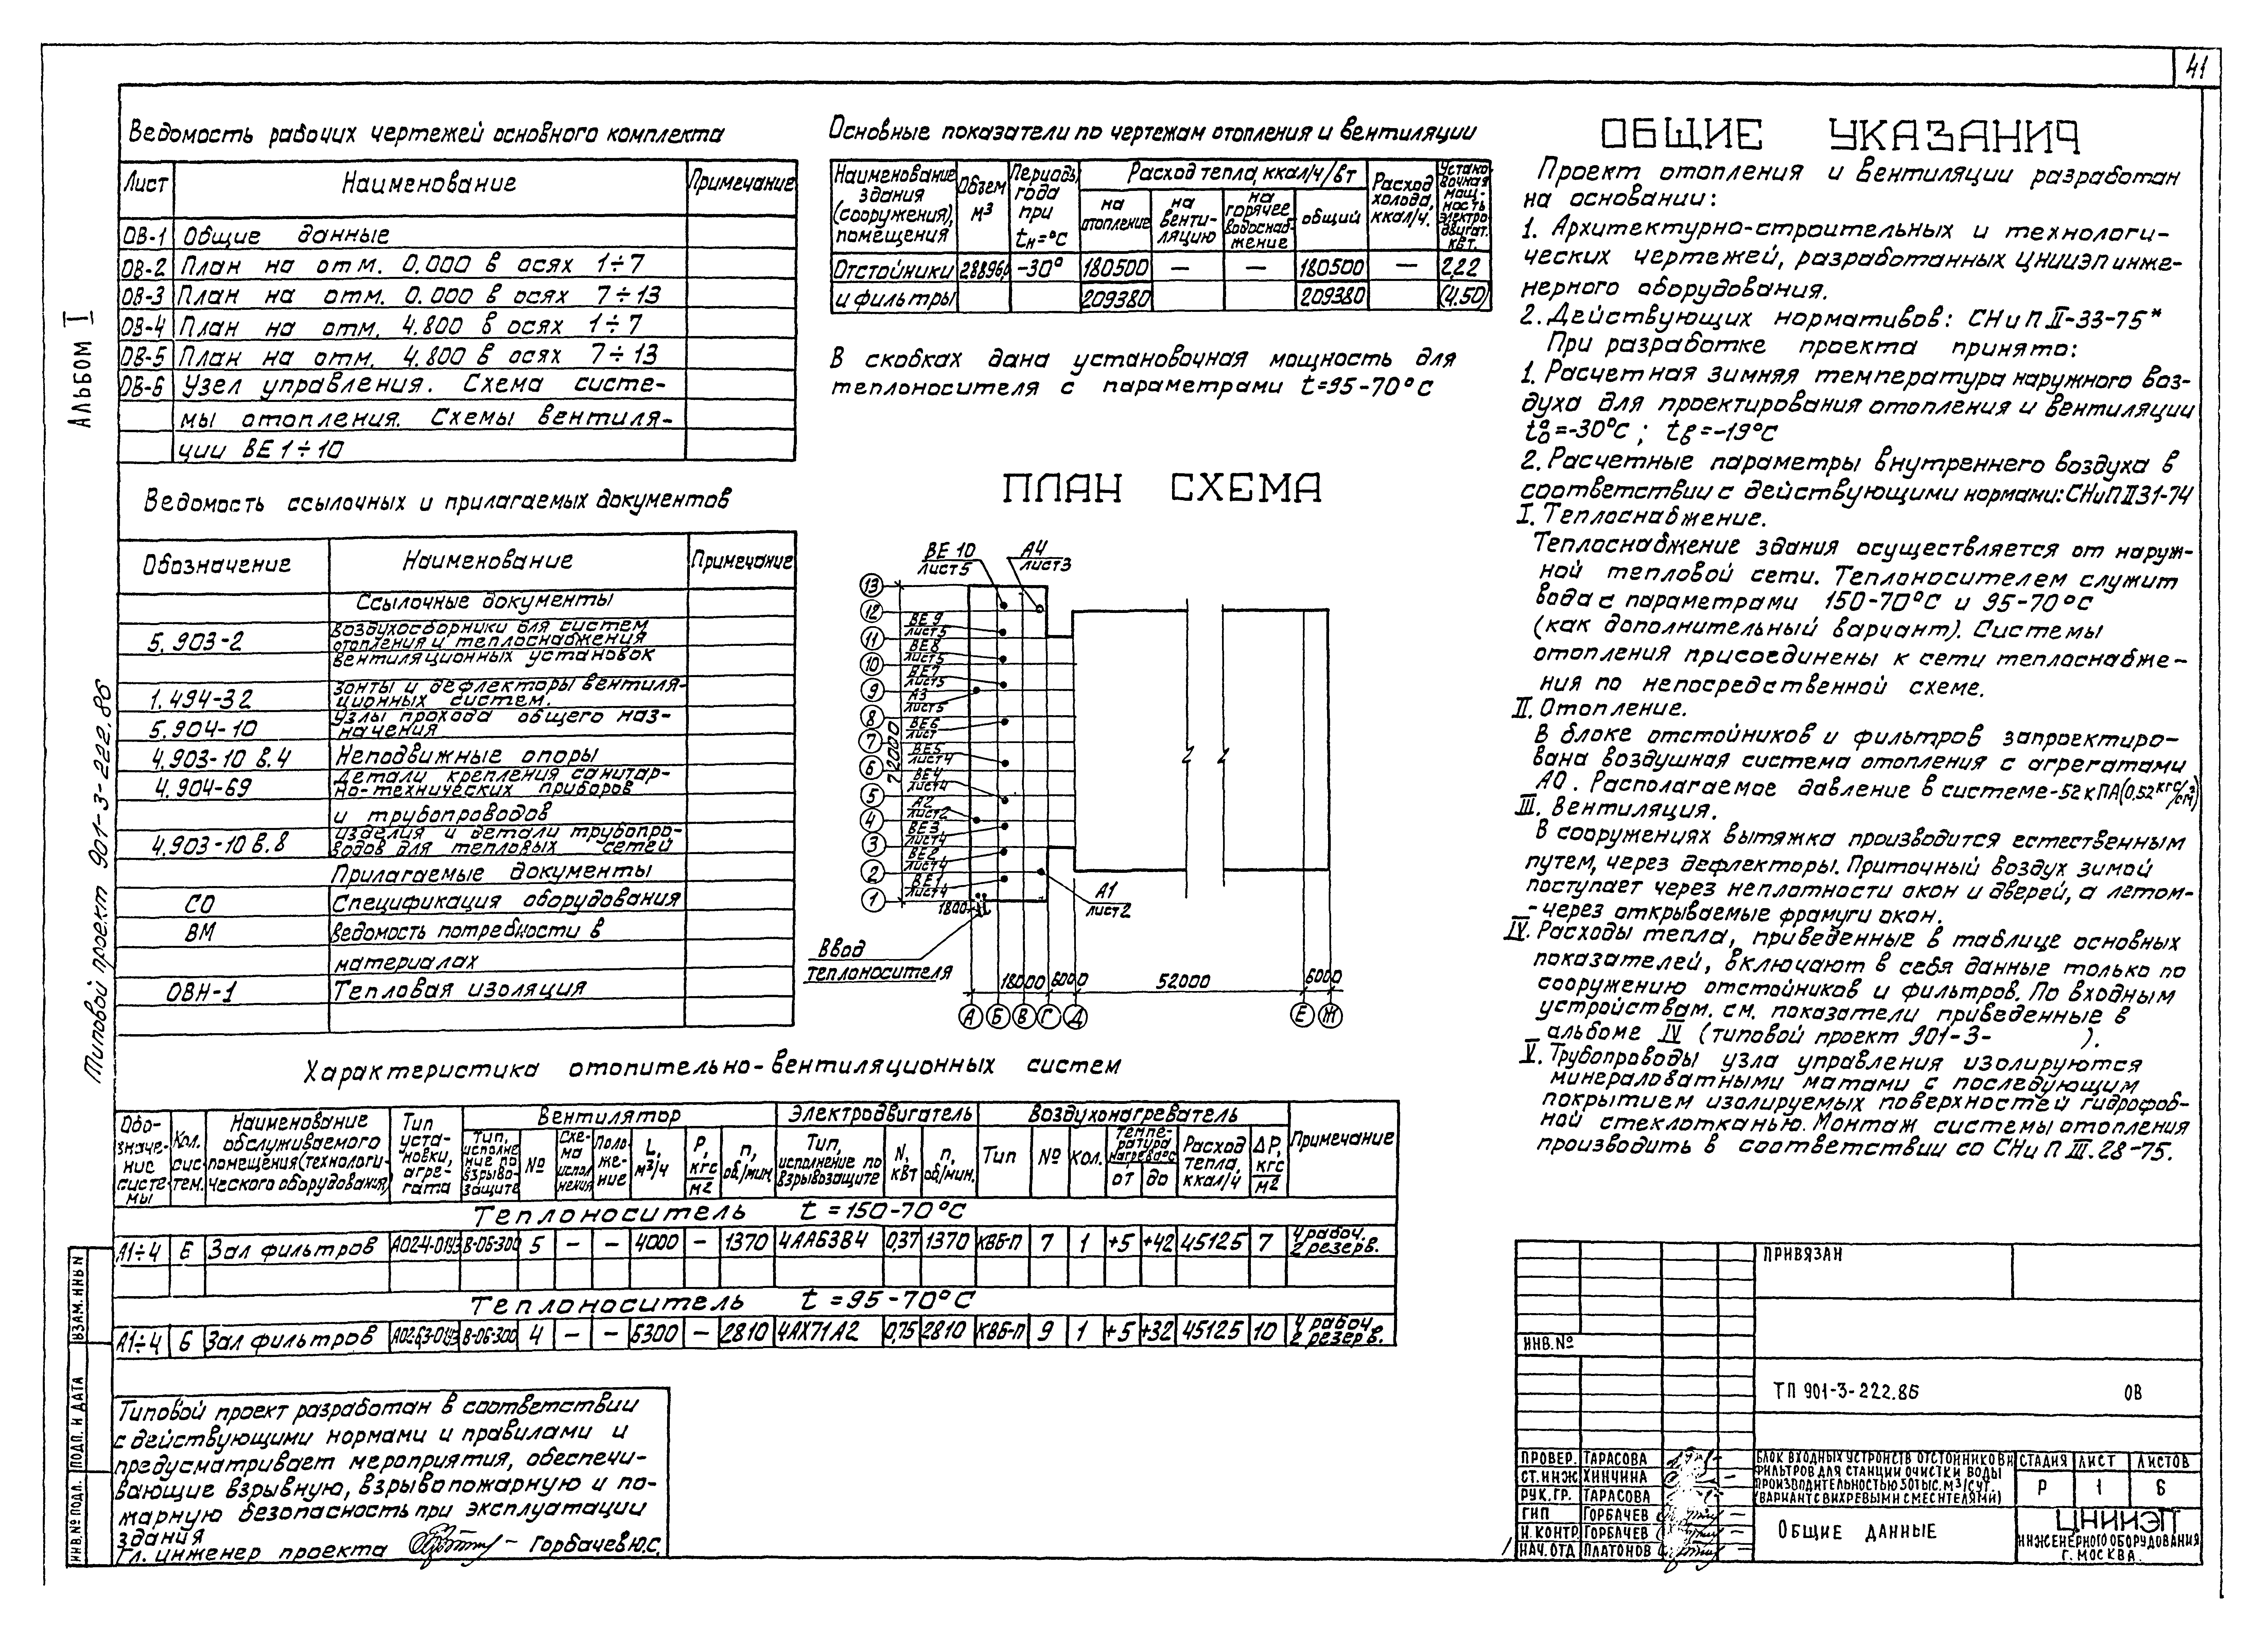 41
Альбом I
Типовой проект 901-3-222.86
Ведомость рабочих чертежей основного комплекта
Лист Наименование Примечание
ОВ-1 Общие данные
ОВ-2 План на отм. 0.000 в осях 1÷7
ОВ-3 План на отм. 0.000 в осях 7÷13
ОВ-4 План на отм. 4.800 в осях 1÷7
ОВ-5 План на отм. 4.800 в осях 7÷13
ОВ-6 Узел управления. Схема систе-
мы отопления. Схемы вентиля-
ции ВЕ 1÷10
Ведомость ссылочных и прилагаемых документов
Обозначение Наименование Примечание
Ссылочные документы
5.903-2 Воздухосборники для систем
отопления и теплоснабжения
вентиляционных установок
1.494-32 Зонты и дефлекторы вентиля-
ционных систем.
5.904-10 Узлы прохода общего наз-
начения
4.903-10 в.4 Неподвижные опоры
4.904-69 Детали крепления санитар-
но-технических приборов
и трубопроводов
4.903-10 в.8 Изделия и детали трубопро-
водов для тепловых сетей
Прилагаемые документы
СО Спецификация оборудования
ВМ Ведомость потребности в
материалах
ОВН-1 Тепловая изоляция
Основные показатели по чертежам отопления и вентиляции
Наименование здания (сооружения), помещения
Объем м3
Периоды года при tн=°С
Расход тепла, ккал/ч/вт
на отопление
на венти-
ляцию
на горячее водоснаб-
жение
общий
Расход холода, ккал/ч.
Устано-
вочная мощ-
ность электро-
двигат. квт.
Отстойники 28896,0 -30° 180500 — — 180500 — 2,22
и фильтры 209380 209380 (4.50)
В скобках дана установочная мощность для
теплоносителя с параметрами t=95-70°С
ПЛАН СХЕМА
ВЕ 10
лист 5
А4
лист 3
ВЕ 9
лист 5
ВЕ8
лист 5
ВЕ7
лист 5
А3
лист 5
ВЕ6
лист
ВЕ5
лист 4
ВЕ4
лист 4
А2
лист 2
ВЕ3
лист 4
ВЕ2
лист 4
ВЕ1
лист 4
А1
лист 2
13
12
11
10
9
8
7
6
5
4
3
2
1
72000
1800
Ввод
теплоносителя
18000 6000 52000 6000
А Б В Г Д Е Ж
ОБЩИЕ УКАЗАНИЯ
Проект отопления и вентиляции разработан
на основании:
1. Архитектурно-строительных и технологи-
ческих чертежей, разработанных ЦНИИЭП инже-
нерного оборудования.
2. Действующих нормативов: СНиП II-33-75*
При разработке проекта принято:
1. Расчетная зимняя температура наружного воз-
духа для проектирования отопления и вентиляции
tо=-30°С; tв=-19°С
2. Расчетные параметры внутреннего воздуха в
соответствии с действующими нормами: СНиП II 31-74
I. Теплоснабжение.
Теплоснабжение здания осуществляется от наруж-
ной тепловой сети. Теплоносителем служит
вода с параметрами 150-70°С и 95-70°С
(как дополнительный вариант). Системы
отопления присоединены к сети теплоснабже-
ния по непосредственной схеме.
II. Отопление.
В блоке отстойников и фильтров запроектиро-
вана воздушная система отопления с агрегатами
АО. Располагаемое давление в системе-52кПА(0,52 кгс/см2)
III. Вентиляция.
В сооружениях вытяжка производится естественным
путем, через дефлекторы. Приточный воздух зимой
поступает через неплотности окон и дверей, а летом-
-через открываемые фрамуги окон.
IV. Расходы тепла, приведенные в таблице основных
показателей, включают в себя данные только по
сооружению отстойников и фильтров. По входным
устройствам. см. показатели приведенные в
альбоме IV (типовой проект 901-3- ).
V. Трубопроводы узла управления изолируются
минераловатными матами с последующим
покрытием изолируемых поверхностей гидрофоб-
ной стеклотканью. Монтаж системы отопления
производить в соответствии со СНиП III.28-75.
Характеристика отопительно-вентиляционных систем
Обо-
значе-
ние систе-
мы
Кол. сис-
тем.
Наименование обслуживаемого помещения (технологи-
ческого оборудования)
Тип уста-
новки, агре-
гата
Вентилятор
Тип, исполне-
ние по взрыво-
защите
№
Схе-
ма испол-
нения
Поло-
же-
ние
L, м3/ч
P, кгс/м2
n, об/мин.
Электродвигатель
Тип, исполнение по взрывозащите
N, квт
n, об/мин.
Воздухонагреватель
Тип
№
Кол.
Темпе-
ратура нагрева°С
от
до
Расход тепла, ккал/ч
ΔР, кгс/м2
Примечание
Теплоноситель t=150-70°С
А1÷4 6 Зал фильтров АО24-01УЗ В-06-300 5 — — 4000 — 1370 4АА63В4 0,37 1370 КВБ-П 7 1 +5 +42 45125 7 4 рабоч. 2 резерв.
Теплоноситель t=95-70°С
А1÷4 6 Зал фильтров АО2.63-01УЗ В-06-300 4 — — 6300 — 2810 4АХ71А2 0,75 2810 КВБ-П 9 1 +5 +32 45125 10 4 рабоч. 2 резерв.
Типовой проект разработан в соответствии
с действующими нормами и правилами и
предусматривает мероприятия, обеспечи-
вающие взрывную, взрывопожарную и по-
жарную безопасность при эксплуатации
здания
Гл. инженер проекта — Горбачев Ю.С.
ВЗАМ. ИНВ N
ПОДП. И ДАТА
ИНВ.№ ПОДЛ.
ПРИВЯЗАН
ИНВ.№
ТП 901-3-222.86 ОВ
ПРОВЕР. ТАРАСОВА
СТ.ИНЖ ХИНЧИНА
РУК.ГР. ТАРАСОВА
ГИП ГОРБАЧЕВ
Н.КОНТР. ГОРБАЧЕВ
НАЧ.ОТД ПЛАТОНОВ
БЛОК ВХОДНЫХ УСТРОЙСТВ ОТСТОЙНИКОВ И
ФИЛЬТРОВ ДЛЯ СТАНЦИИ ОЧИСТКИ ВОДЫ
ПРОИЗВОДИТЕЛЬНОСТЬЮ 50 ТЫС. М3/СУТ.
(ВАРИАНТ С ВИХРЕВЫМИ СМЕСИТЕЛЯМИ)
СТАДИЯ ЛИСТ ЛИСТОВ
Р 1 6
ОБЩИЕ ДАННЫЕ
ЦНИИЭП
ИНЖЕНЕРНОГО ОБОРУДОВАНИЯ
Г. МОСКВА.